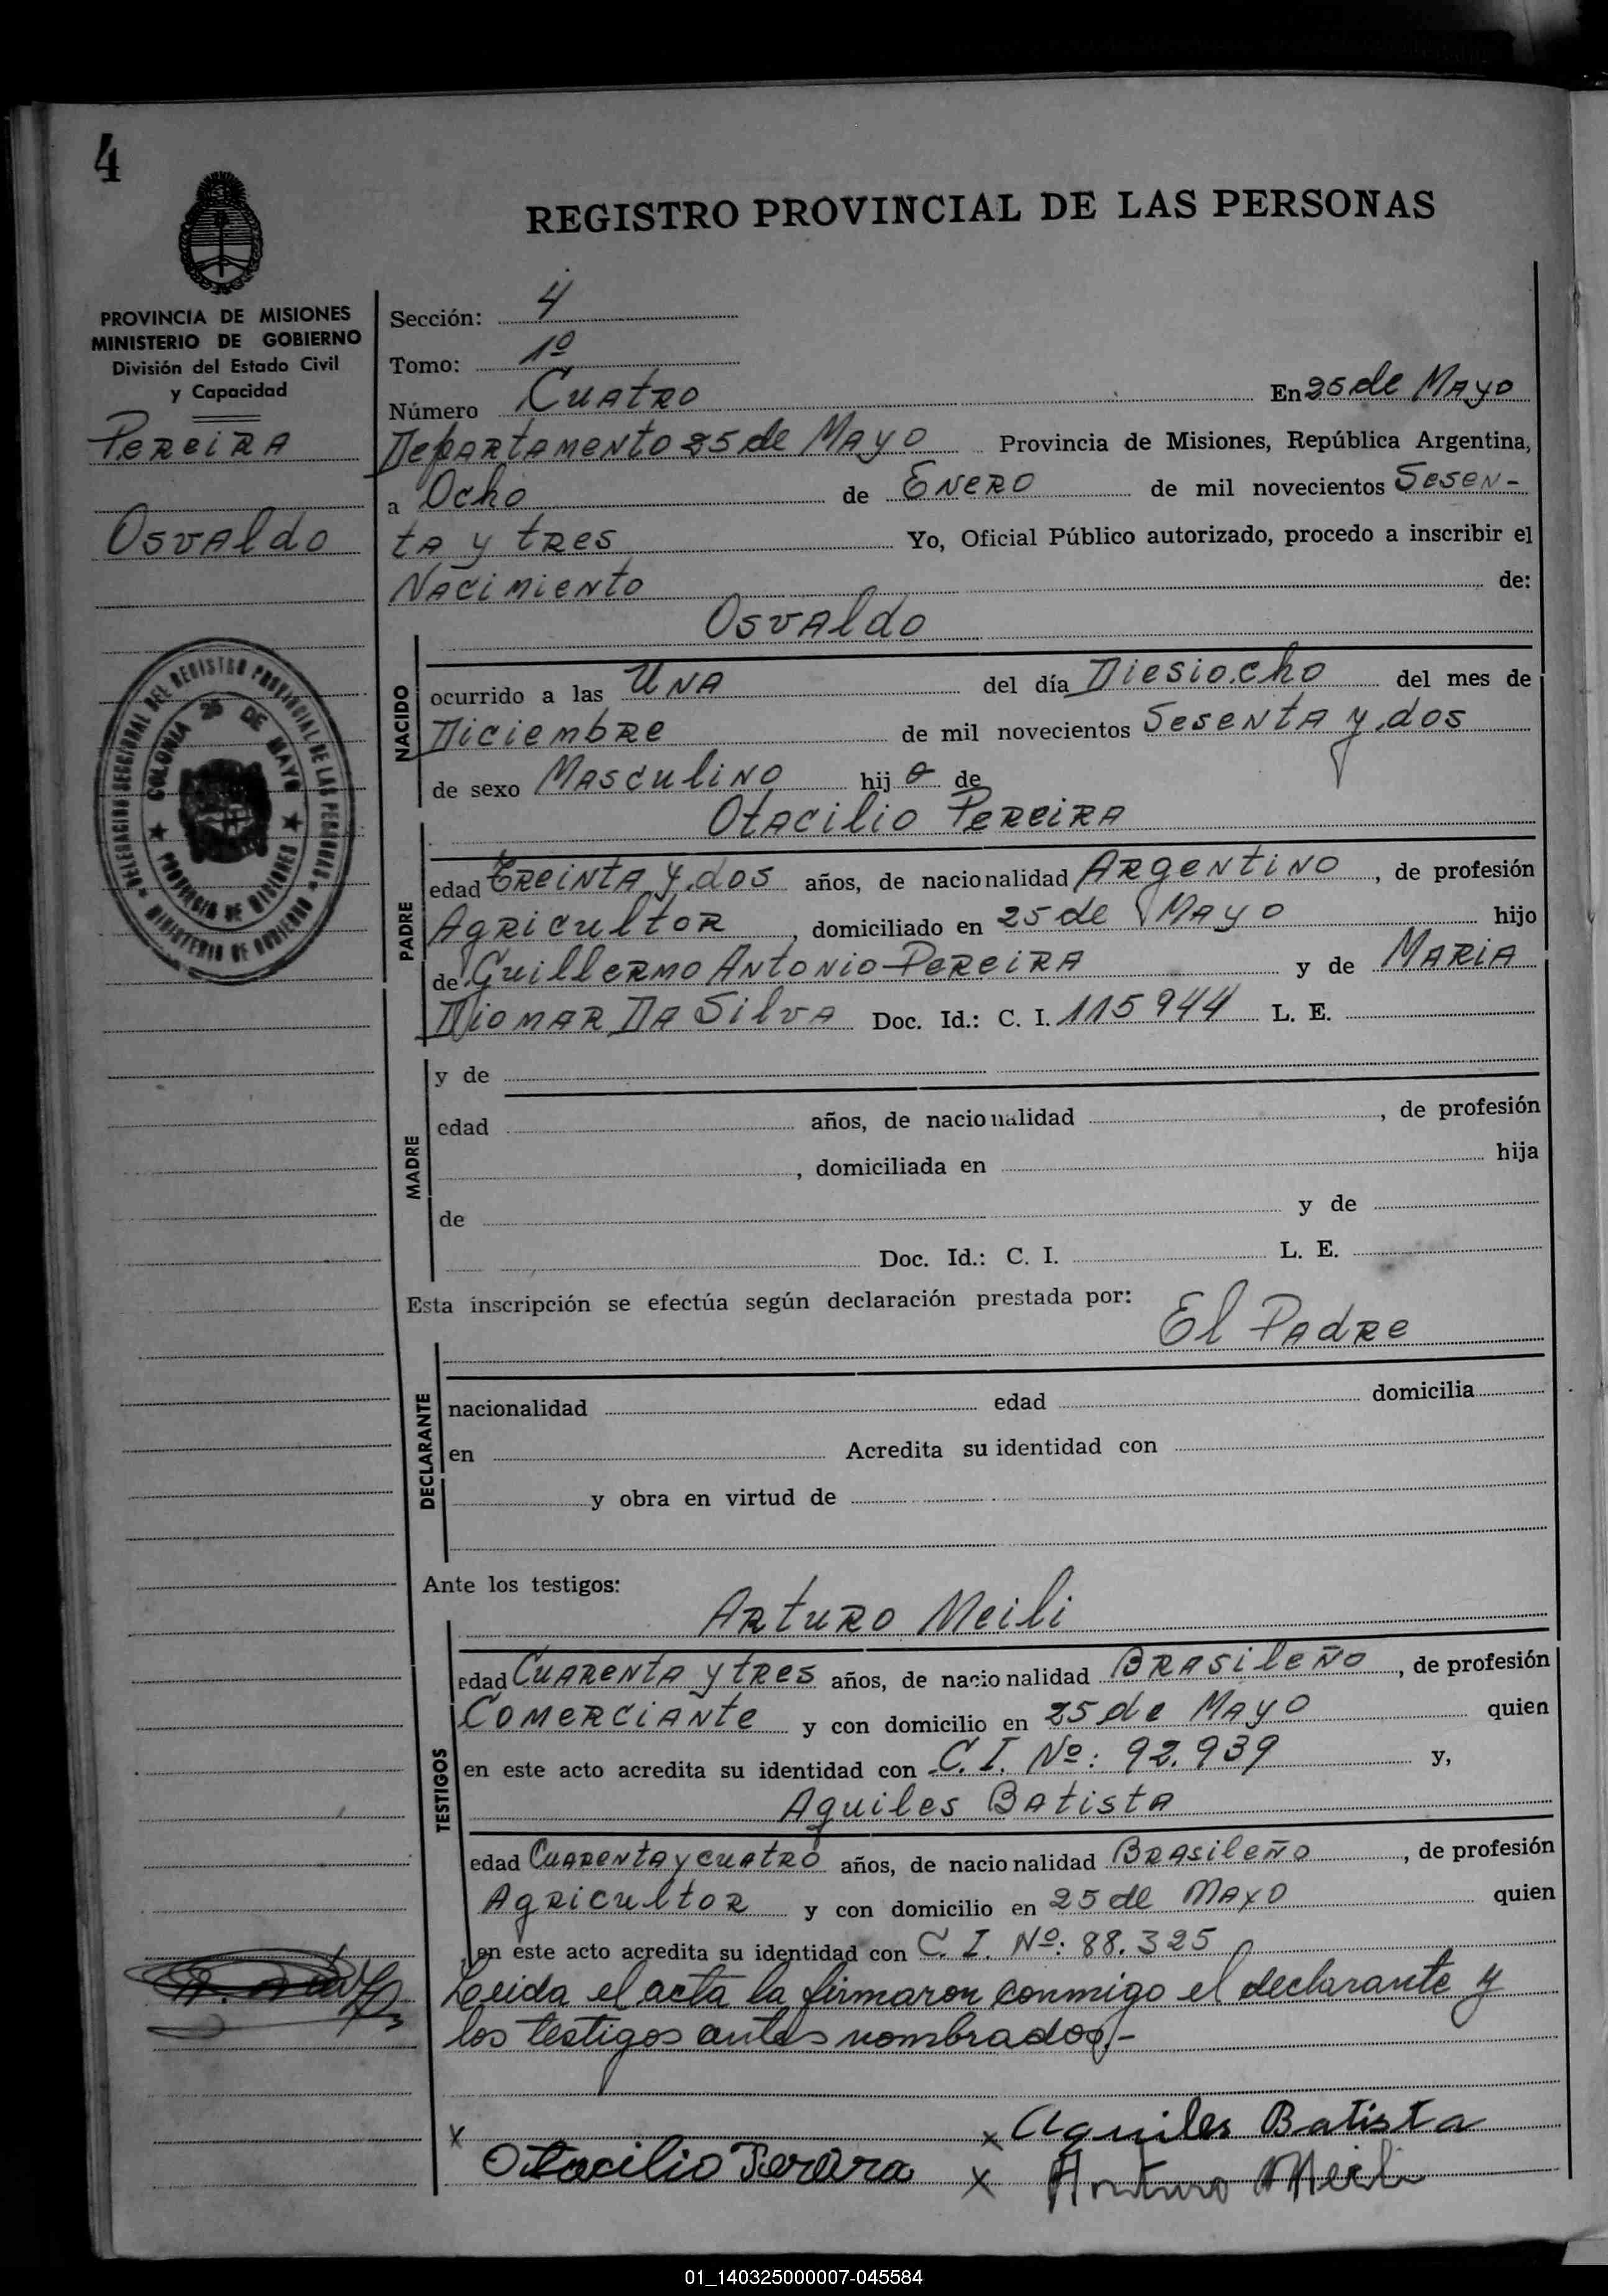 4
REGISTRO PROVINCIAL DE LAS PERSONAS
PROVINCIA DE MISIONES
MINISTERIO DE GOBIERNO
División del Estado Civil
y Capacidad
PEREIRA
OSVALDO
DELEGACION SECCIONAL DEL REGISTRO PROVINCIAL DE LAS PERSONAS
COLONIA 25 DE MAYO
PROVINCIA DE MISIONES
MINISTERIO DE GOBIERNO
Sección: 4
Tomo: 1º
Número Cuatro En 25 de Mayo
Departamento 25 de Mayo Provincia de Misiones, República Argentina,
a Ocho de Enero de mil novecientos Sesen-
ta y tres Yo, Oficial Público autorizado, procedo a inscribir el
Nacimiento de:
Osvaldo
NACIDO
ocurrido a las Una del día Diesiocho del mes de
Diciembre de mil novecientos Sesenta y dos
de sexo Masculino hijo de
Otacilio Pereira
PADRE
edad Treinta y dos años, de nacionalidad Argentino, de profesión
Agricultor, domiciliado en 25 de Mayo hijo
de Guillermo Antonio Pereira y de Maria
Diomar Da Silva Doc. Id.: C. I. 115944 L. E.
MADRE
y de
edad años, de nacionalidad , de profesión
, domiciliada en hija
de y de
Doc. Id.: C. I. L. E.
Esta inscripción se efectúa según declaración prestada por:
El Padre
DECLARANTE
nacionalidad edad domicilia
en Acredita su identidad con
y obra en virtud de
Ante los testigos:
Arturo Meili
TESTIGOS
edad Cuarenta y tres años, de nacionalidad Brasileño, de profesión
Comerciante y con domicilio en 25 de Mayo quien
en este acto acredita su identidad con C. I. Nº: 92.939 y,
Aquiles Batista
edad Cuarenta y cuatro años, de nacionalidad Brasileño, de profesión
Agricultor y con domicilio en 25 de Mayo quien
en este acto acredita su identidad con C. I. Nº: 88.325
Leida el acta la firmaron conmigo el declarante y
los testigos antes nombrados.-
x x Aquiles Batista
Otacilio Perera x Arturo Meili
01_140325000007-045584